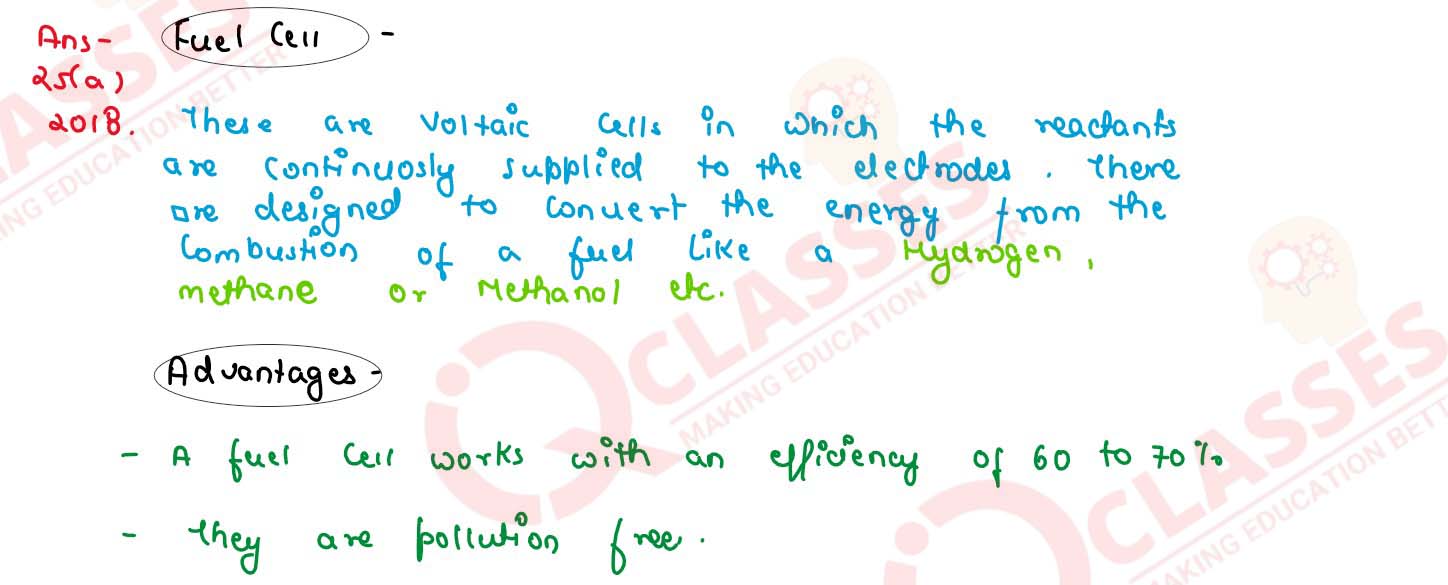 Ans- Fuel Cell -
25(a)
2018. These are Voltaic Cells in which the reactants
are continuosly supplied to the electrodes. There
are designed to convert the energy from the
Combustion of a fuel Like a Hydrogen,
methane or Methanol etc.
Advantages -
- A fuel Cell works with an efficiency of 60 to 70%
- They are pollution free.
CLASSES
MAKING EDUCATION BETTER